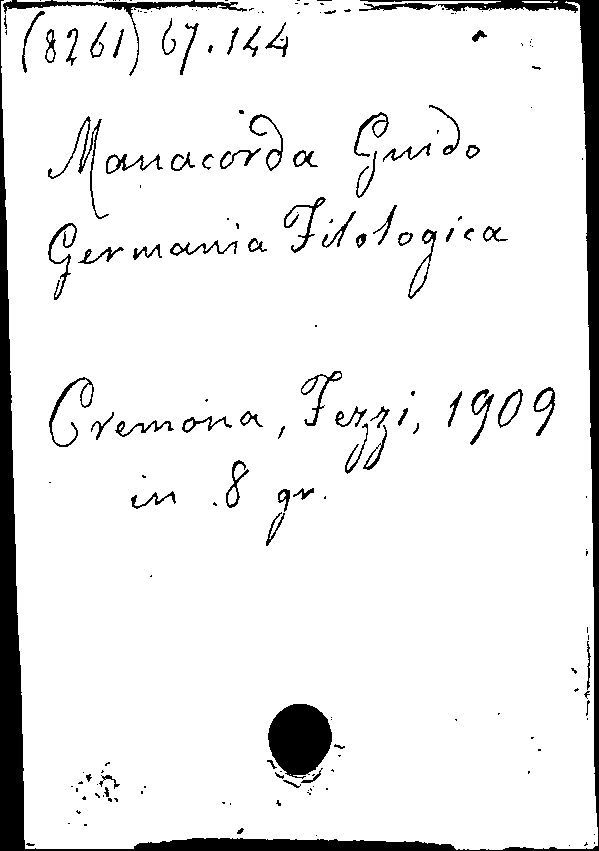 (8261) 67.144
Manacorda Guido
Germania Filologica
Cremona, Fezzi, 1909
in 8 gr.